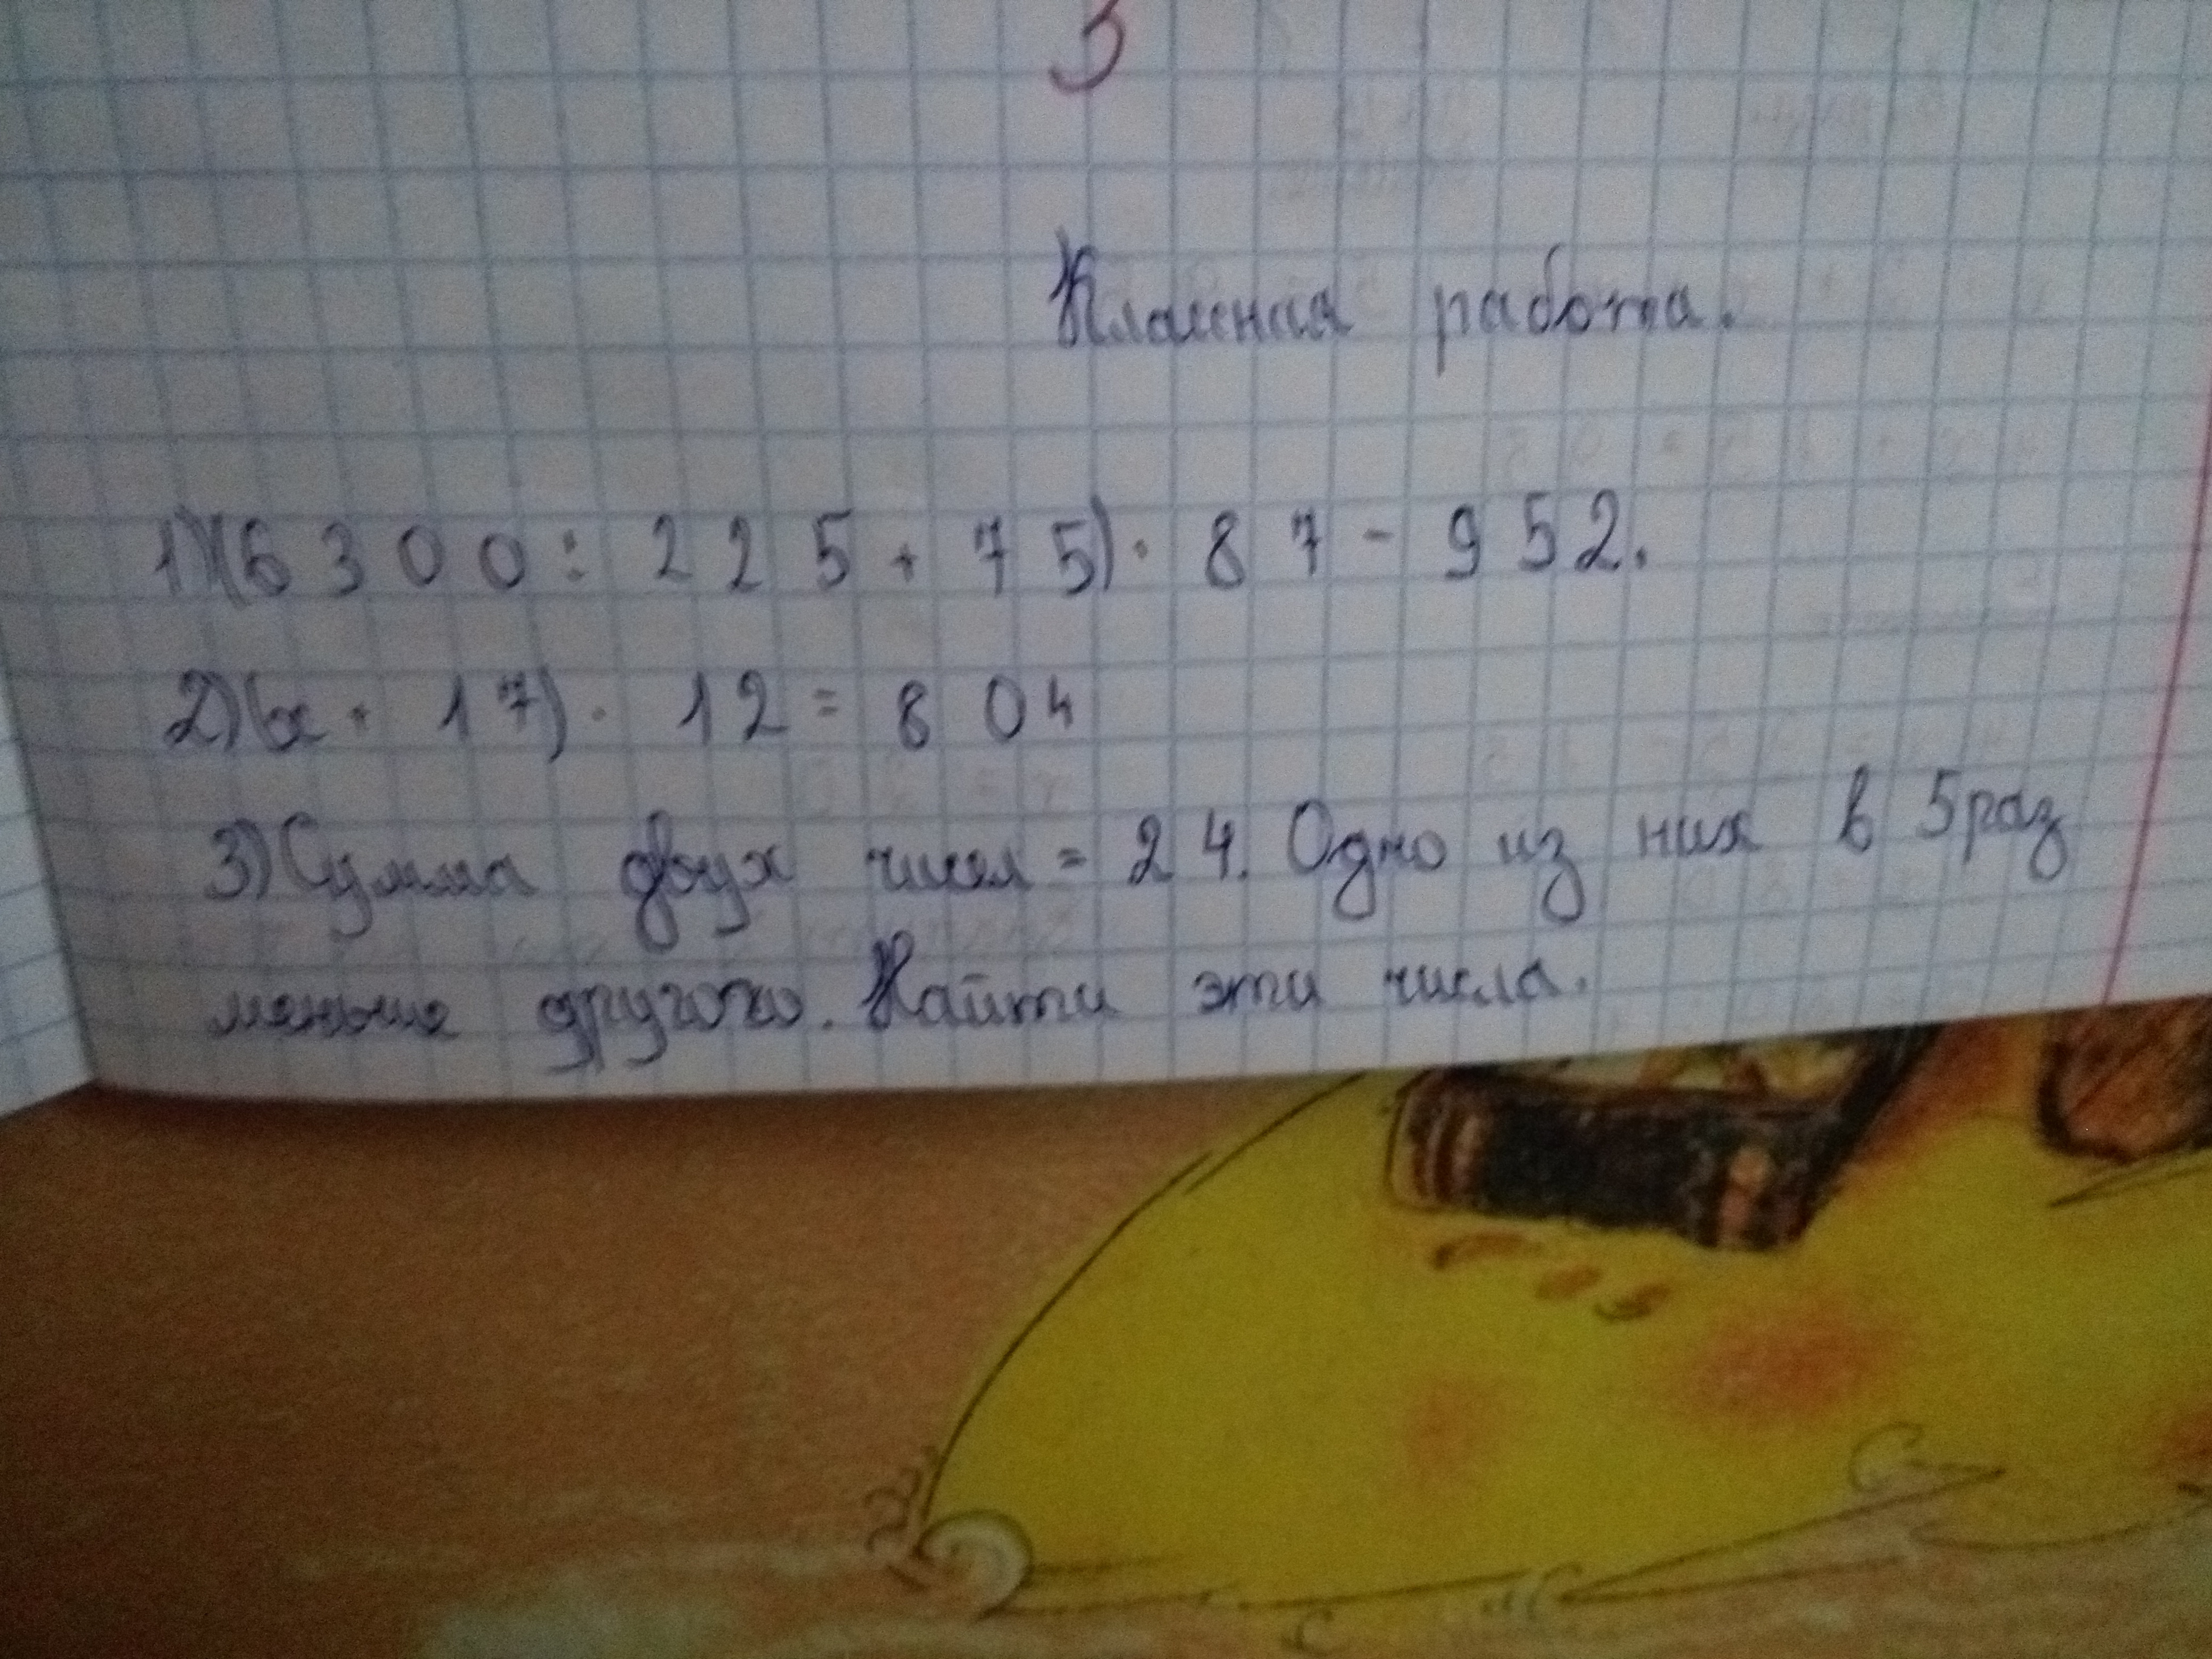 Классная работа.
1)(6300:225+75)·87-952.
2)(x+17)·12=804
3)Сумма двух чисел=24. Одно из них в 5раз
меньше другого. Найти эти числа.